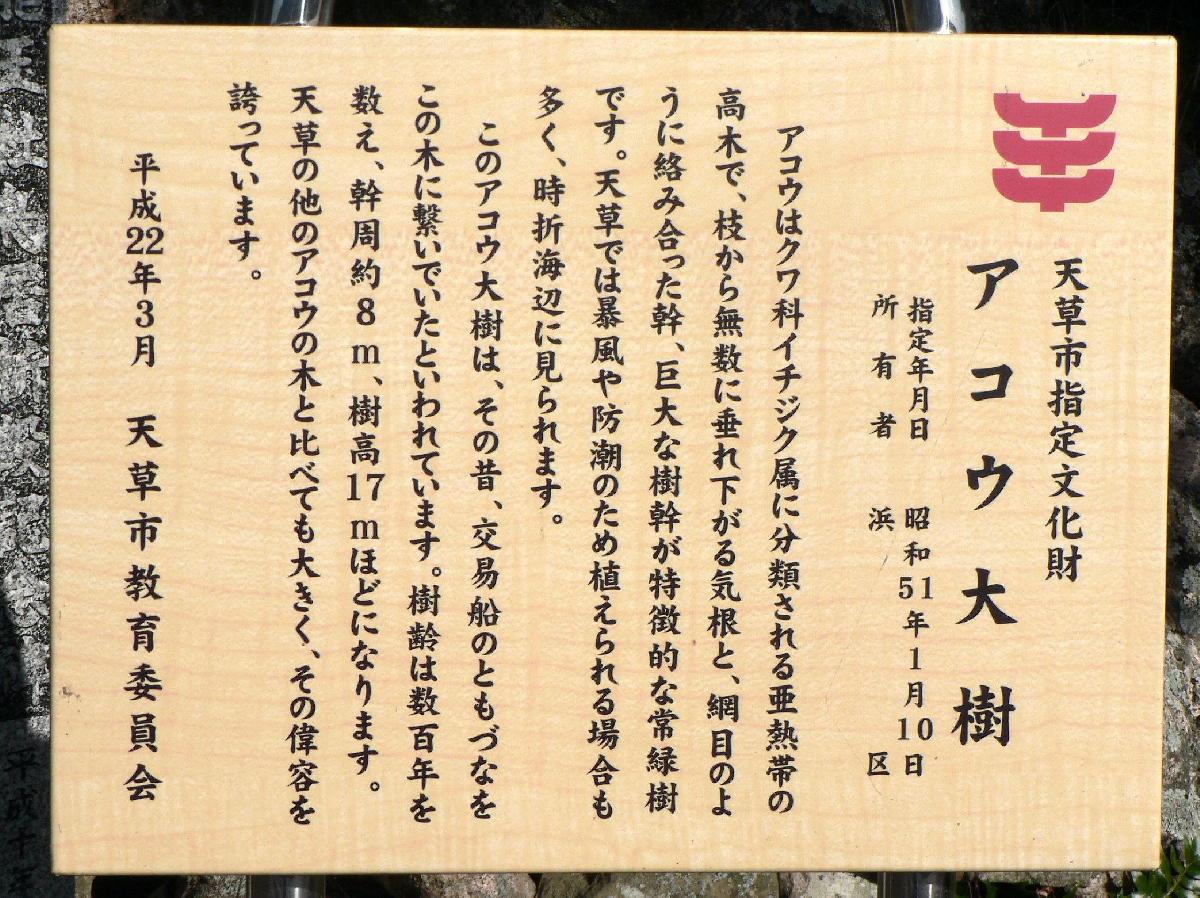 天草市指定文化財
アコウ大樹
指定年月日 昭和51年1月10日
所有者 浜区
アコウはクワ科イチジク属に分類される亜熱帯の
高木で、枝から無数に垂れ下がる気根と、網目のよ
うに絡み合った幹、巨大な樹幹が特徴的な常緑樹
です。天草では暴風や防潮のため植えられる場合も
多く、時折海辺に見られます。
このアコウ大樹は、その昔、交易船のともづなを
この木に繋いでいたといわれています。樹齢は数百年を
数え、幹周約8m、樹高17mほどになります。
天草の他のアコウの木と比べても大きく、その偉容を
誇っています。
平成22年3月 天草市教育委員会
平成十年